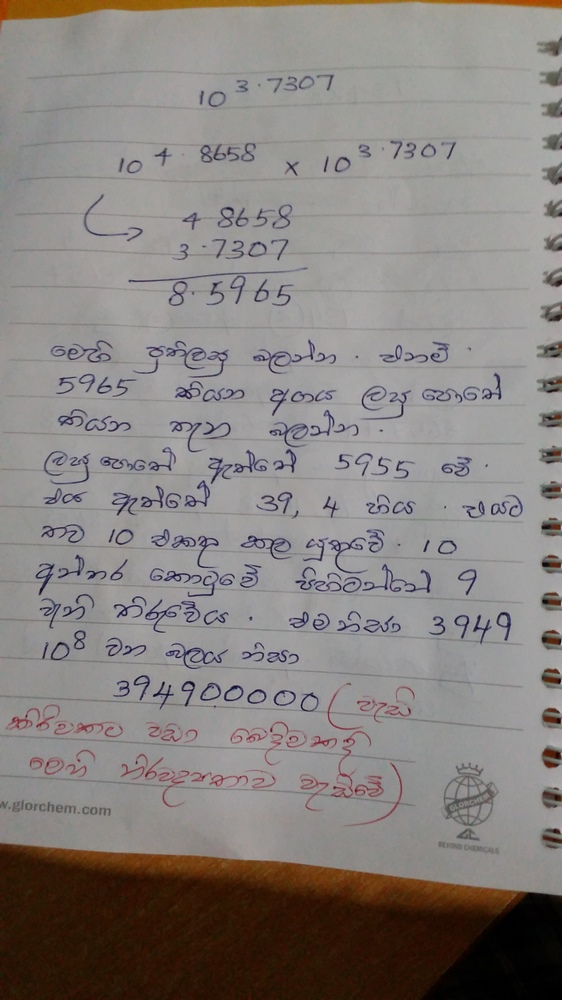 10 3.7307
10 4.8658 x 10 3.7307
4 8658
3.7307
8.5965
මෙහි ප්‍රතිලඝු බලන්න. එනම්
5965 කියන අගය ලඝු පොතේ
කියන තැන බලන්න.
ලඝු පොතේ ඇත්තේ 5955 වේ.
එය ඇත්තේ 39, 4 හිය. එයට
තව 10 එකතු කල යුතුවේ. 10
අන්තර කොටුවේ පිහිටන්නේ 9
වැනි තිරුවේය. එම නිසා 3949
10 8 වන බලය නිසා
394900000 (වැඩි
කිරීමකට වඩා බෙදීමකදී
මෙහි නිරවද්‍යතාව වැඩිවේ)
w.glorchem.com
BEYOND CHEMICALS